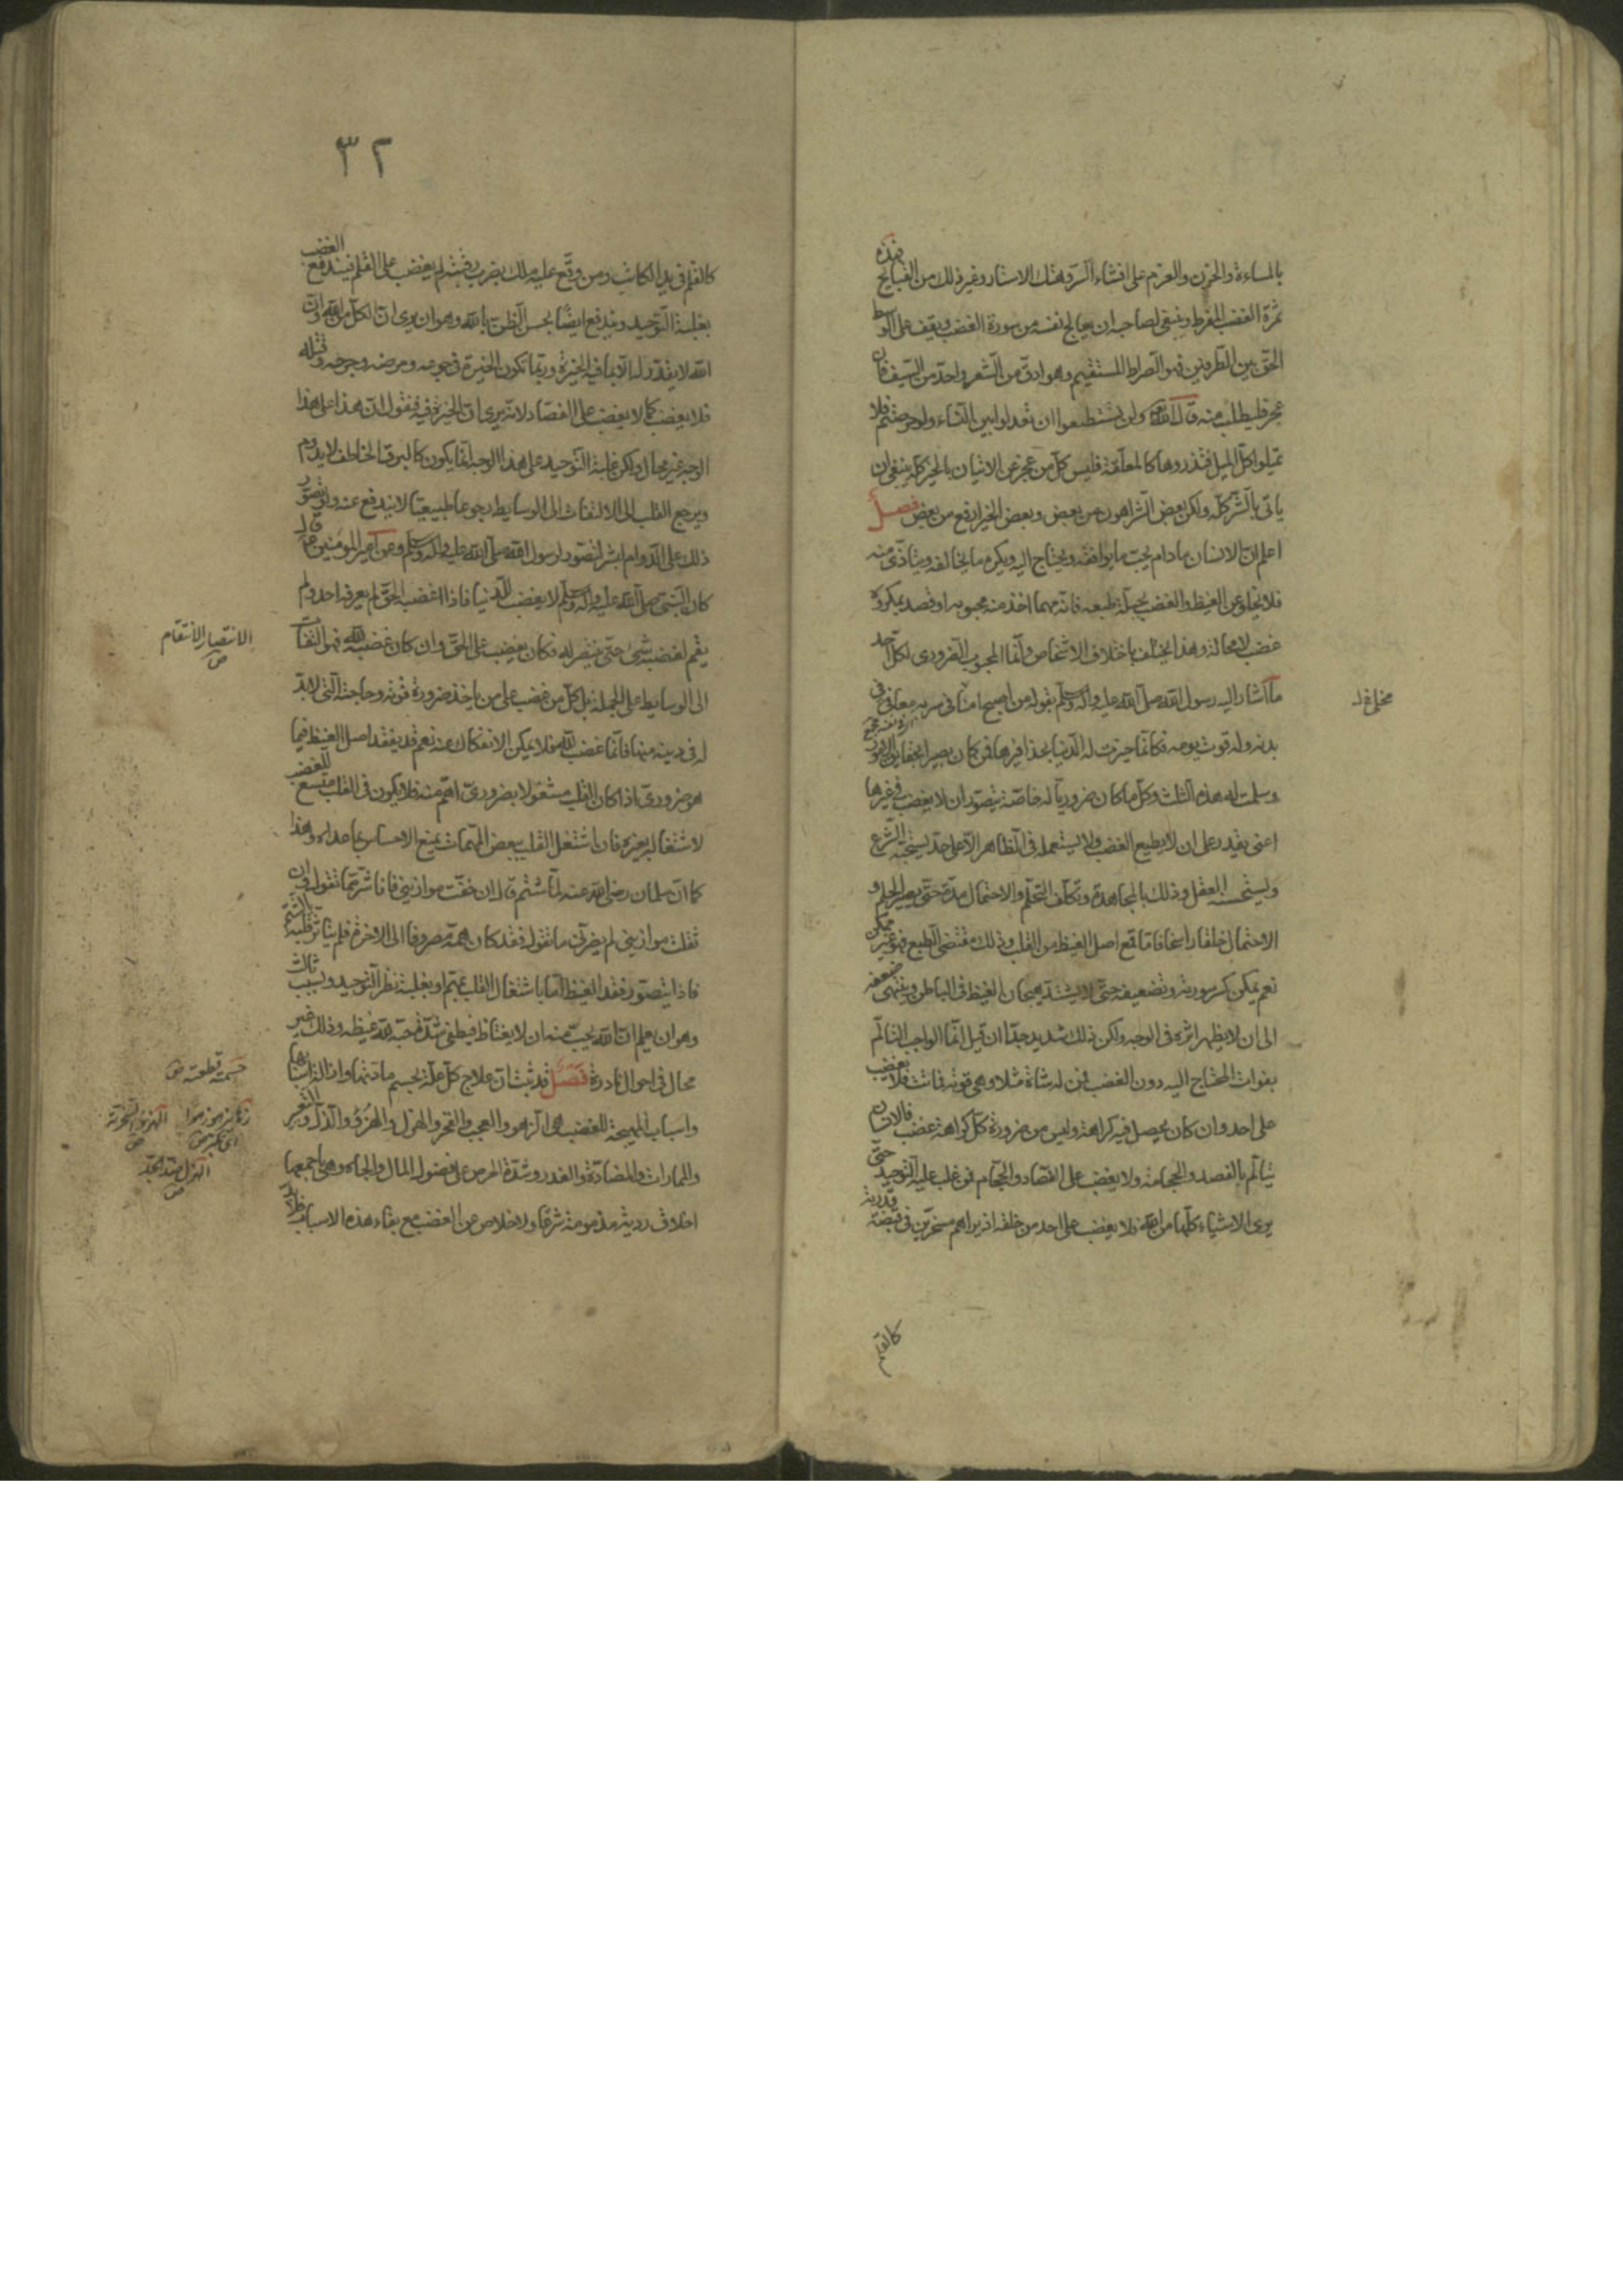 بالمساءة والحزن والعزم على افشاء السّر وهتك الاستار وغير ذلك من القبايح فهذه
ثمرة الغضب المفرط وينبغى لصاحبه ان يعالج نفسه من سورة الغضب ويقف على الوسط
الحقّ بين الطّرفين فهو الصّراط المستقيم وهو ادقّ من الشّعر واحدّ من السّيف فان
عجز فليطلب منه قال الله ولن تستطيعوا ان تعدلوا بين النّساء ولو حرصتم فلا
تميلوا كلّ الميل فتذروها كالمعلّقة فليس كلّ من عجز عن الاتيان بالخير كلّه ينبغى ان
ياتى بالشّر كلّه ولكن بعض الشّر اهون من بعض وبعض الخير ارفع من بعض فصل
اعلم انّ الانسان ما دام يحبّ ما يوافقه ويحتاج اليه ويكره ما يخالفه ويتاذّى منه
فلا يخلو عن الغيظ والغضب بجبلّة طبعه فانّه مهما اخذ منه محبوبه او قصد بمكروه
غضب لا محالة وهذا يختلف باختلاف الاشخاص وامّا المحبوب الضّرورى لكلّ احد
ما اشار اليه رسول الله صلّى الله عليه وآله وسلم بقوله من اصبح امنا فى سربه معافى فى
بدنه وله قوت يومه فكانّما حيزت له الدّنيا بحذافيرها فمن كان بصيرا بحقايق الامور
وسلمت له هذه الثلث وكلّ ما كان ضروريّا له خاصّة يتصوّر ان لا يغضب فى غيرها
اعنى يقدر على ان لا يطيع الغضب ولا يستعمله فى الظاهر الّا على حدّ يستحبّه الشّرع
ويستحسنه العقل وذلك بالمجاهدة وتكلّف التحلّم والاحتمال مدّة حتّى يصير الحلم و
الاحتمال خلقا راسخا فامّا قمع اصل الغيظ من القلب وذلك مقتضى الطبع فهو غير ممكن
نعم يمكن كسر سورته وتضعيفه حتّى لا يشتدّ هيجان الغيظ فى الباطن وينتهى ضعفه
الى ان لا يظهر اثره فى الوجه ولكن ذلك شديد جدّا ان قيل انّما الواجب التالّم
بفوات المحتاج اليه دون الغضب فمن له شاة مثلا وهى قوته فماتت فلا يغضب
على احد وان كان يحصل فيه كراهة وليس من ضرورة كلّ كراهة غضب فالانسان
يتالّم بالفصد والحجامة ولا يغضب على الفصّاد والحجّام فمن غلب عليه التّوحيد حتّى
يرى الاشياء كلّها من الله فلا يغضب على احد من خلقه اذ يراهم مسخّرين فى قبضة قدرته
كالقلم
٣٢
كالقلم فى يد الكاتب ومن وقّع عليه ملك بضرب رقبته لم يغضب على القلم فيندفع الغضب
بغلبة التّوحيد ويندفع ايضًا بحسن الظّن بالله وهو ان يرى انّ الكلّ من الله وانّ
الله لا يقدّر له الّا ما فيه الخيرة وربّما تكون الخيرة فى جوعه ومرضه وجرحه وقتله
فلا يغضب كما لا يغضب على الفصّاد لانّه يرى انّ الخيرة فيه فنقول انّ هذا على هذا
الوجه غير محال ولكن غلبة التّوحيد على هذا الوجه انّما يكون كالبرق الخاطف لا يدوم
ويرجع القلب الى الالتفات الى الوسايط رجوعا طبيعيّا لا يندفع عنه ولو تصوّر
ذلك على الدّوام لبشر لتصوّر لرسول الله صلّى الله عليه وآله وسلم وعن امير المومنين ع قال
كان النّبى صلّى الله عليه وآله وسلم لا يغضب للدّنيا فاذا اغضبه الحقّ لم يعرفه احد ولم
يقم لغضبه شىء حتّى ينتصر له فكان يغضب على الحقّ وان كان غضبه لله فهو التفات
الى الوسايط على الجملة بل كلّ من غضب على من ياخذ ضرورة قوته وحاجته الّتى لا بدّ
له فى دينه منها فانّما غضب لله فلا يمكن الانفكاك عنه نعم قد يفقد اصل الغيظ فيما
هو ضرورىّ اذا كان القلب مشغولا بضرورىّ اهمّ منه فلا يكون فى القلب متّسع للغضب
لاشتغاله بغيره فان اشتغل القلب ببعض المهمّات يمنع الاحساس بما عداه وهذا
كما انّ سلمان رضى الله عنه لمّا شتم قال ان خفّت موازينى فانا شرّ ممّا تقول وان
ثقلت موازينى لم يضرّنى ما تقول فقد كان همّه مصروفا الى الاخرة فلم يتاثّر قلبه بالشّتم
فاذا يتصوّر فقد الغيظ امّا باشتغال القلب بمهمّ او بغلبة نظر التّوحيد وبسبب ثالث
وهو ان يعلم انّ الله يحبّ منه ان لا يغتاظ فيطفى شدّة حبّه لله غيظه وذلك غير
محال فى احوال نادرة فصل قد ثبت انّ علاج كلّ علّة بحسم مادّتها وازالة اسبابها
واسباب المهيّجة للغضب هى الزهو والعجب والفخر والهزل والهزؤ والذلّ والتّعير
والممارات والمضادّة والغدر وشدّة الحرص على فضول المال والجاه وهى باجمعها
اخلاق رديّة مذمومة شرعًا ولا خلاص عن الغضب مع بقاء هذه الاسباب فلا بدّ
الانتصار الانتقام
ص
حسمه قطعه ص
الهزؤ السّخرية
ص
الهزل ضدّ الجدّ
ص